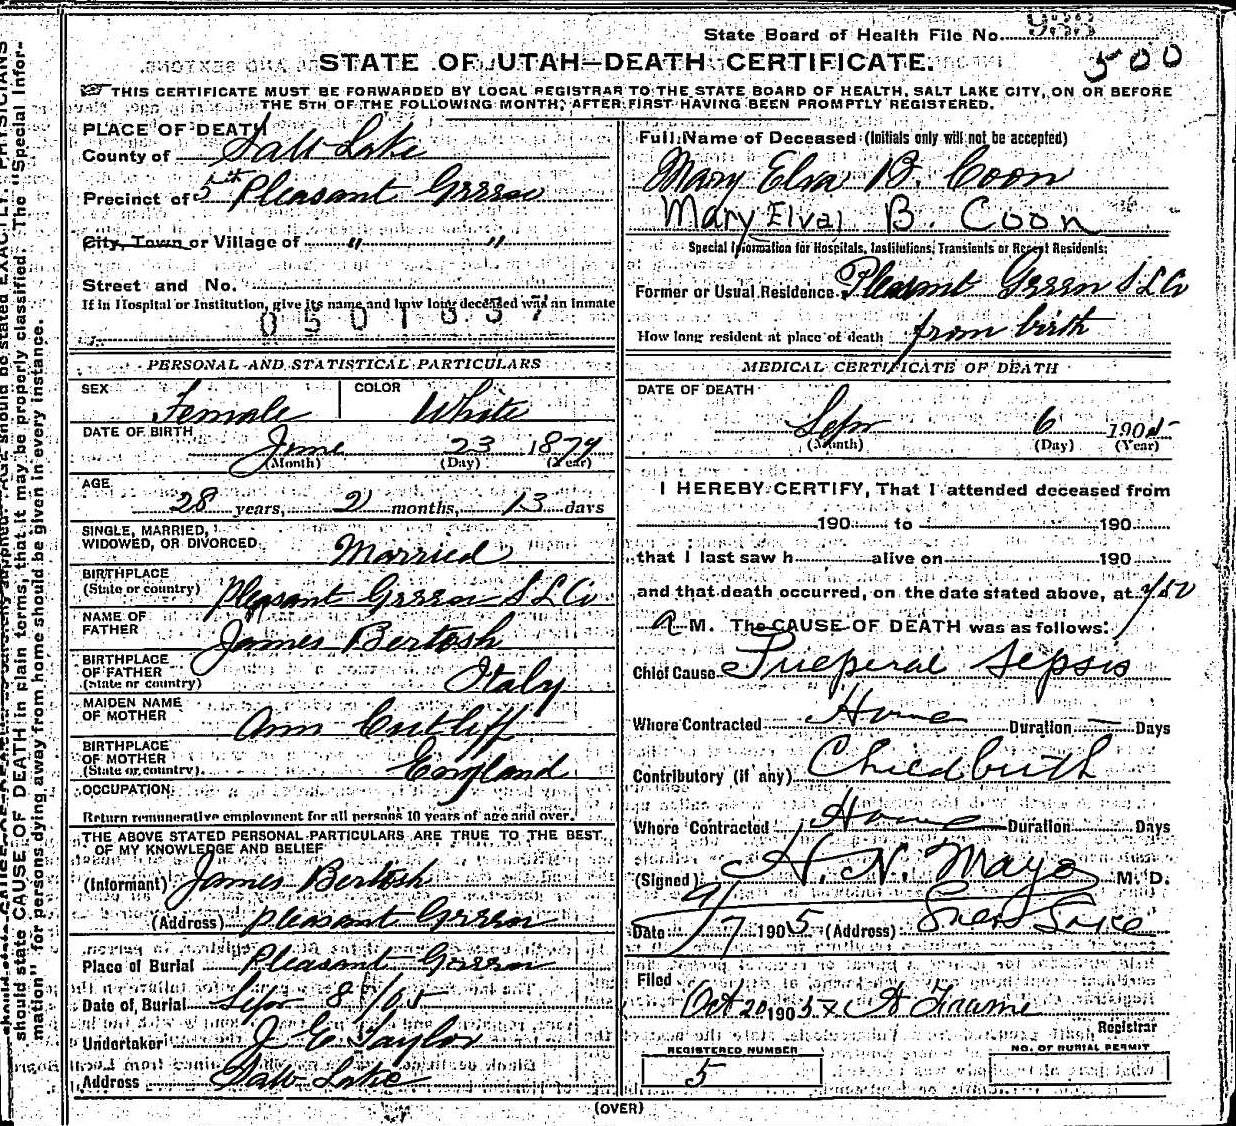 State Board of Health File No. 933
500
STATE OF UTAH—DEATH CERTIFICATE.
THIS CERTIFICATE MUST BE FORWARDED BY LOCAL REGISTRAR TO THE STATE BOARD OF HEALTH, SALT LAKE CITY, ON OR BEFORE
THE 5TH OF THE FOLLOWING MONTH, AFTER FIRST HAVING BEEN PROMPTLY REGISTERED.
PLACE OF DEATH
County of Salt Lake
Precinct of 5th Pleasant Green
City, Town or Village of " "
Street and No.
If in Hospital or Institution, give its name and how long deceased was an inmate
0501637
PERSONAL AND STATISTICAL PARTICULARS
SEX Female COLOR White
DATE OF BIRTH June 23 1879
(Month) (Day) (Year)
AGE
28 years, 2 months, 13 days
SINGLE, MARRIED,
WIDOWED, OR DIVORCED Married
BIRTHPLACE
(State or country) Pleasant Green S L Co
NAME OF
FATHER James Bertosh
BIRTHPLACE
OF FATHER
(State or country) Italy
MAIDEN NAME
OF MOTHER Ann Cutliff
BIRTHPLACE
OF MOTHER
(State or country) England
OCCUPATION
Return remunerative employment for all persons 10 years of age and over.
THE ABOVE STATED PERSONAL PARTICULARS ARE TRUE TO THE BEST
OF MY KNOWLEDGE AND BELIEF
(Informant) James Bertosh
(Address) Pleasant Green
Place of Burial Pleasant Green
Date of Burial Sepr 8th/05
Undertaker J E Taylor
Address Salt Lake
Full Name of Deceased (Initials only will not be accepted)
Mary Elva B. Coon
Mary Elva B. Coon
Special Information for Hospitals, Institutions, Transients or Recent Residents:
Former or Usual Residence Pleasant Green S L Co
How long resident at place of death from birth
MEDICAL CERTIFICATE OF DEATH
DATE OF DEATH
Sepr 6 1905
(Month) (Day) (Year)
I HEREBY CERTIFY, That I attended deceased from
190 to 190
that I last saw h alive on 190
and that death occurred, on the date stated above, at 7/50
a M. The CAUSE OF DEATH was as follows:
Chief Cause Pueperal Sepsis
Where Contracted Home Duration — Days
Contributory (if any) Childbirth
Where Contracted Home Duration Days
(Signed) H. N. Mayo M. D.
Date 9/7 1905 (Address) Salt Lake
Filed
Oct 20 1905
Registrar
REGISTERED NUMBER
5
NO. OF BURIAL PERMIT
(OVER)
should state CAUSE OF DEATH in plain terms, that it may be properly classified. The "Special Infor-
mation" for persons dying away from home should be given in every instance.